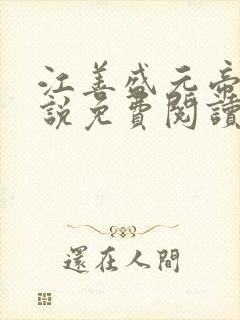 江善盛元帝
說免費閱讀
還在人間